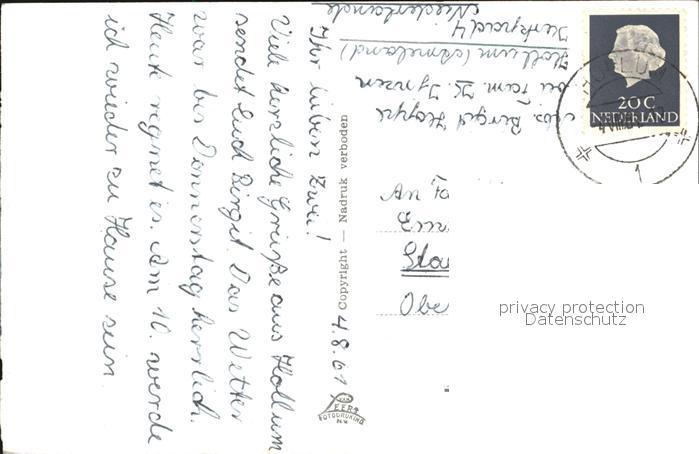 Ihr lieben Zwei!
Viele herzliche Grüße aus Hollum
sendet Euch Birgit. Das Wetter
war bis Donnerstag herrlich.
Heute regnet es. Am 10. werde
ich wieder zu Hause sein.
4.8.61
Copyright — Nadruk verboden
VAN
LEER'S
FOTODRUKIND.
N.V.
Abs. Birgit Hoppe
bei Fam.
Hollum (Ameland)
4
Niederlande
20C
NEDERLAND
HOLLUM
1
An
Sta
Obe
privacy protection
Datenschutz